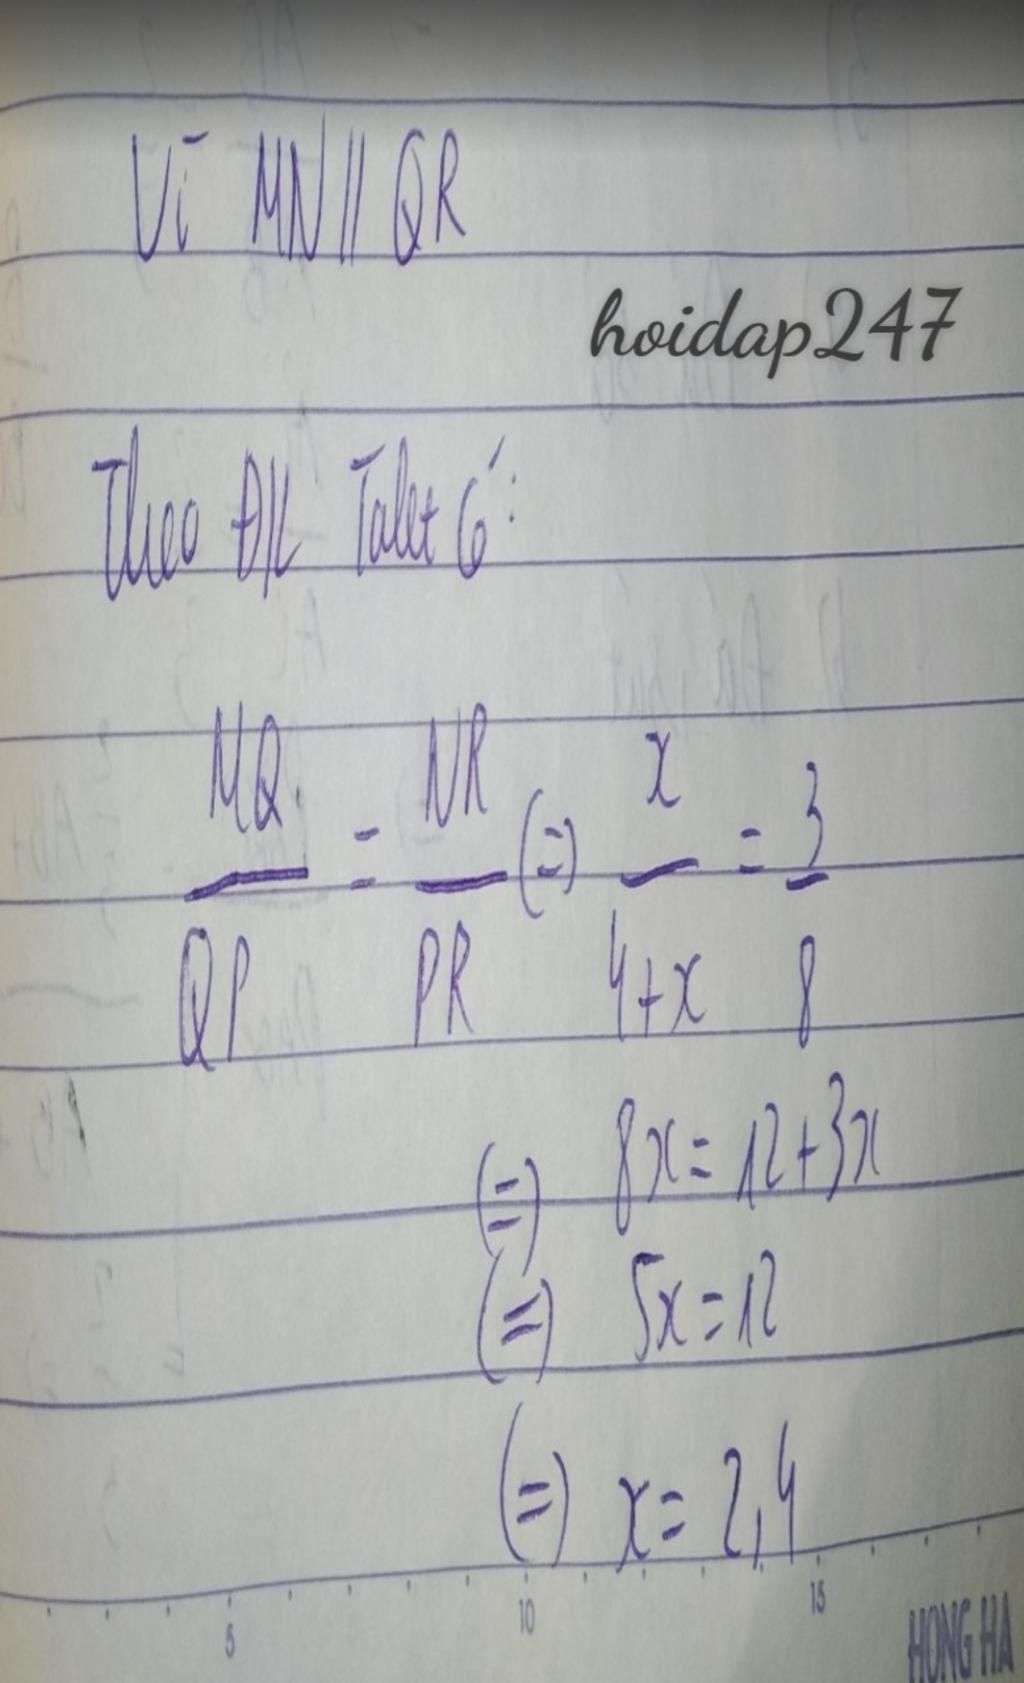 Vì MN // QR
hoidap247
Theo ĐL Talet có:
MQ/QP = NR/PR (=) x/4+x = 3/8
(=) 8x = 12+3x
(=) 5x = 12
(=) x = 2,4
5 10 15
HONG HA